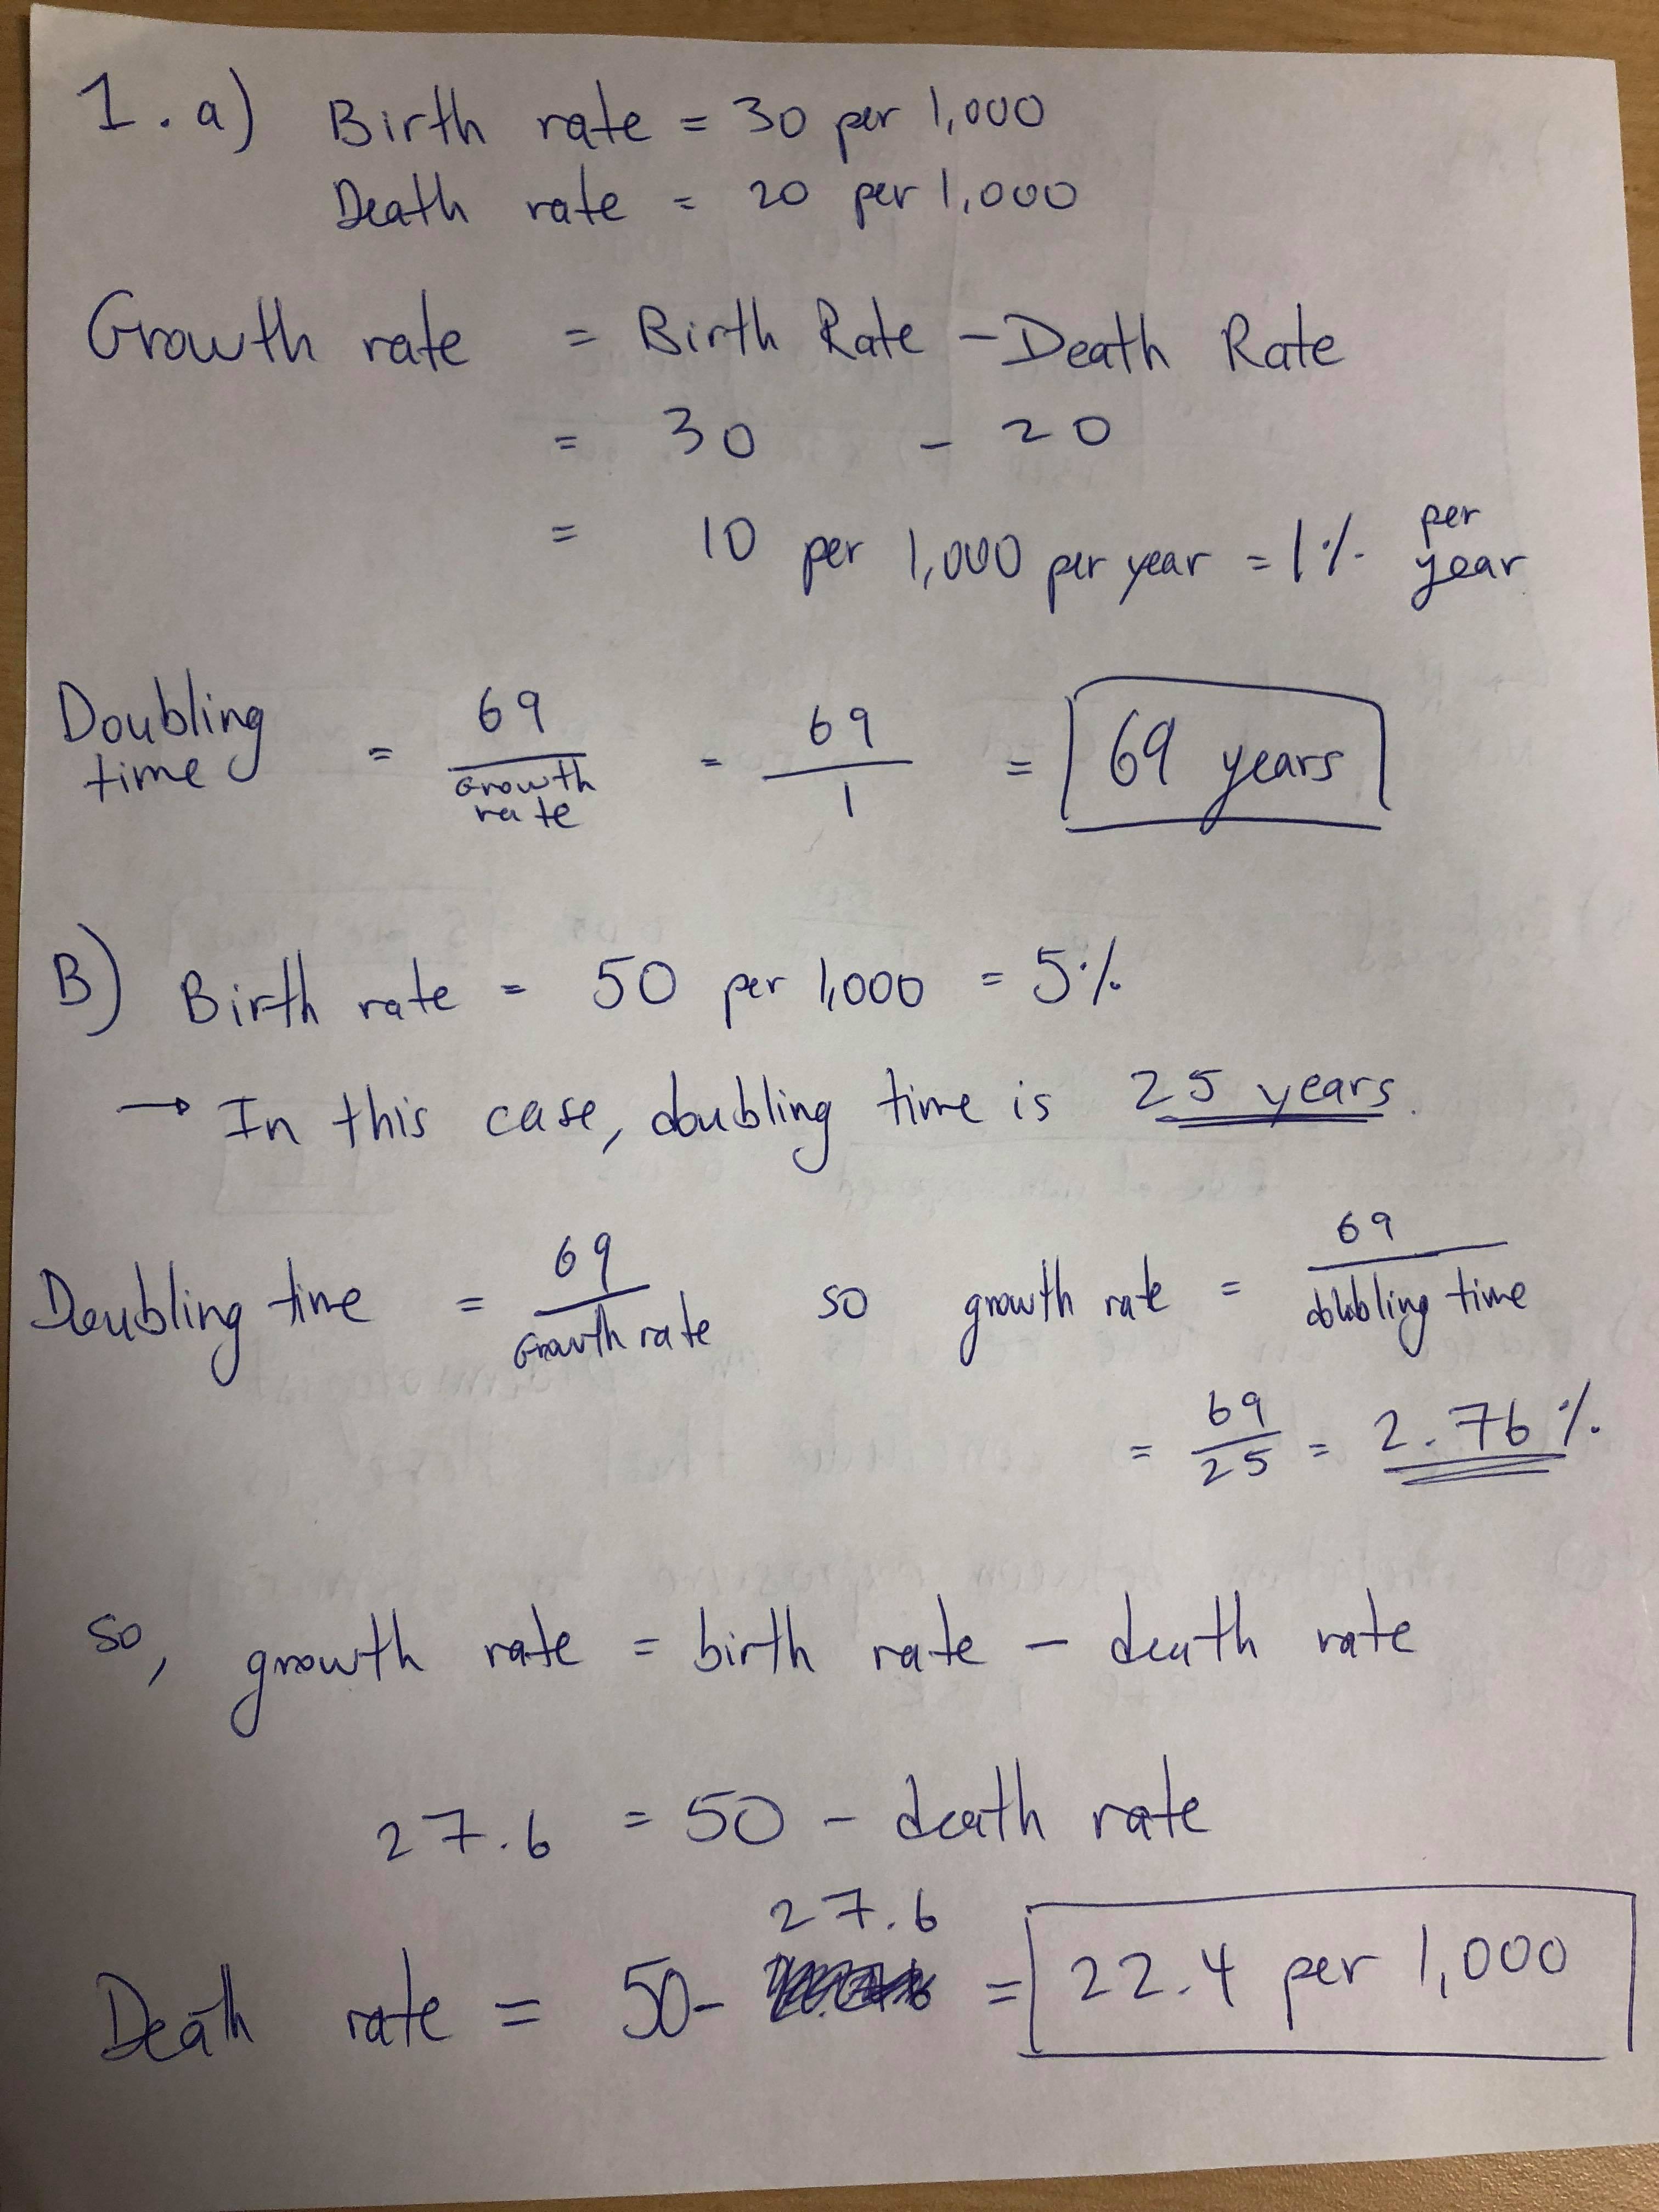 1. a) Birth rate = 30 per 1,000
Death rate = 20 per 1,000
Growth rate = Birth Rate - Death Rate
= 30 - 20
= 10 per 1,000 per year = 1% per year
Doubling time = 69 / Growth rate = 69 / 1 = 69 years
B) Birth rate = 50 per 1,000 = 5%
→ In this case, doubling time is 25 years.
Doubling time = 69 / Growth rate so growth rate = 69 / doubling time
= 69 / 25 = 2.76%
so, growth rate = birth rate - death rate
27.6 = 50 - death rate
27.6
Death rate = 50 - = 22.4 per 1,000